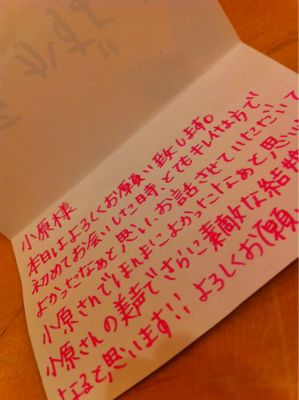 小原様
本日はよろしくお願い致します。
初めてお会いした時、とてもキレイな方で
よかったなぁと思い、お話させていただいて
小原さんでほんまによかったなぁと思い
小原さんの美声でさらに素敵な結婚
なると思います!! よろしくお願